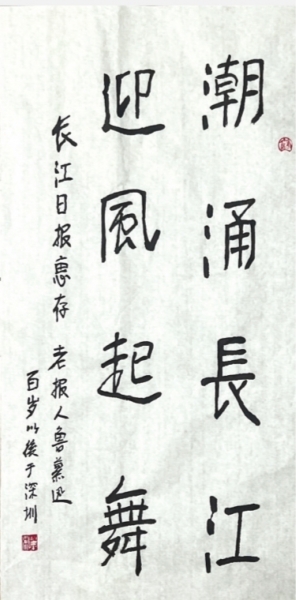 潮涌長江
迎風起舞
长江日报惠存 老报人鲁慕迅
百岁以後于深圳